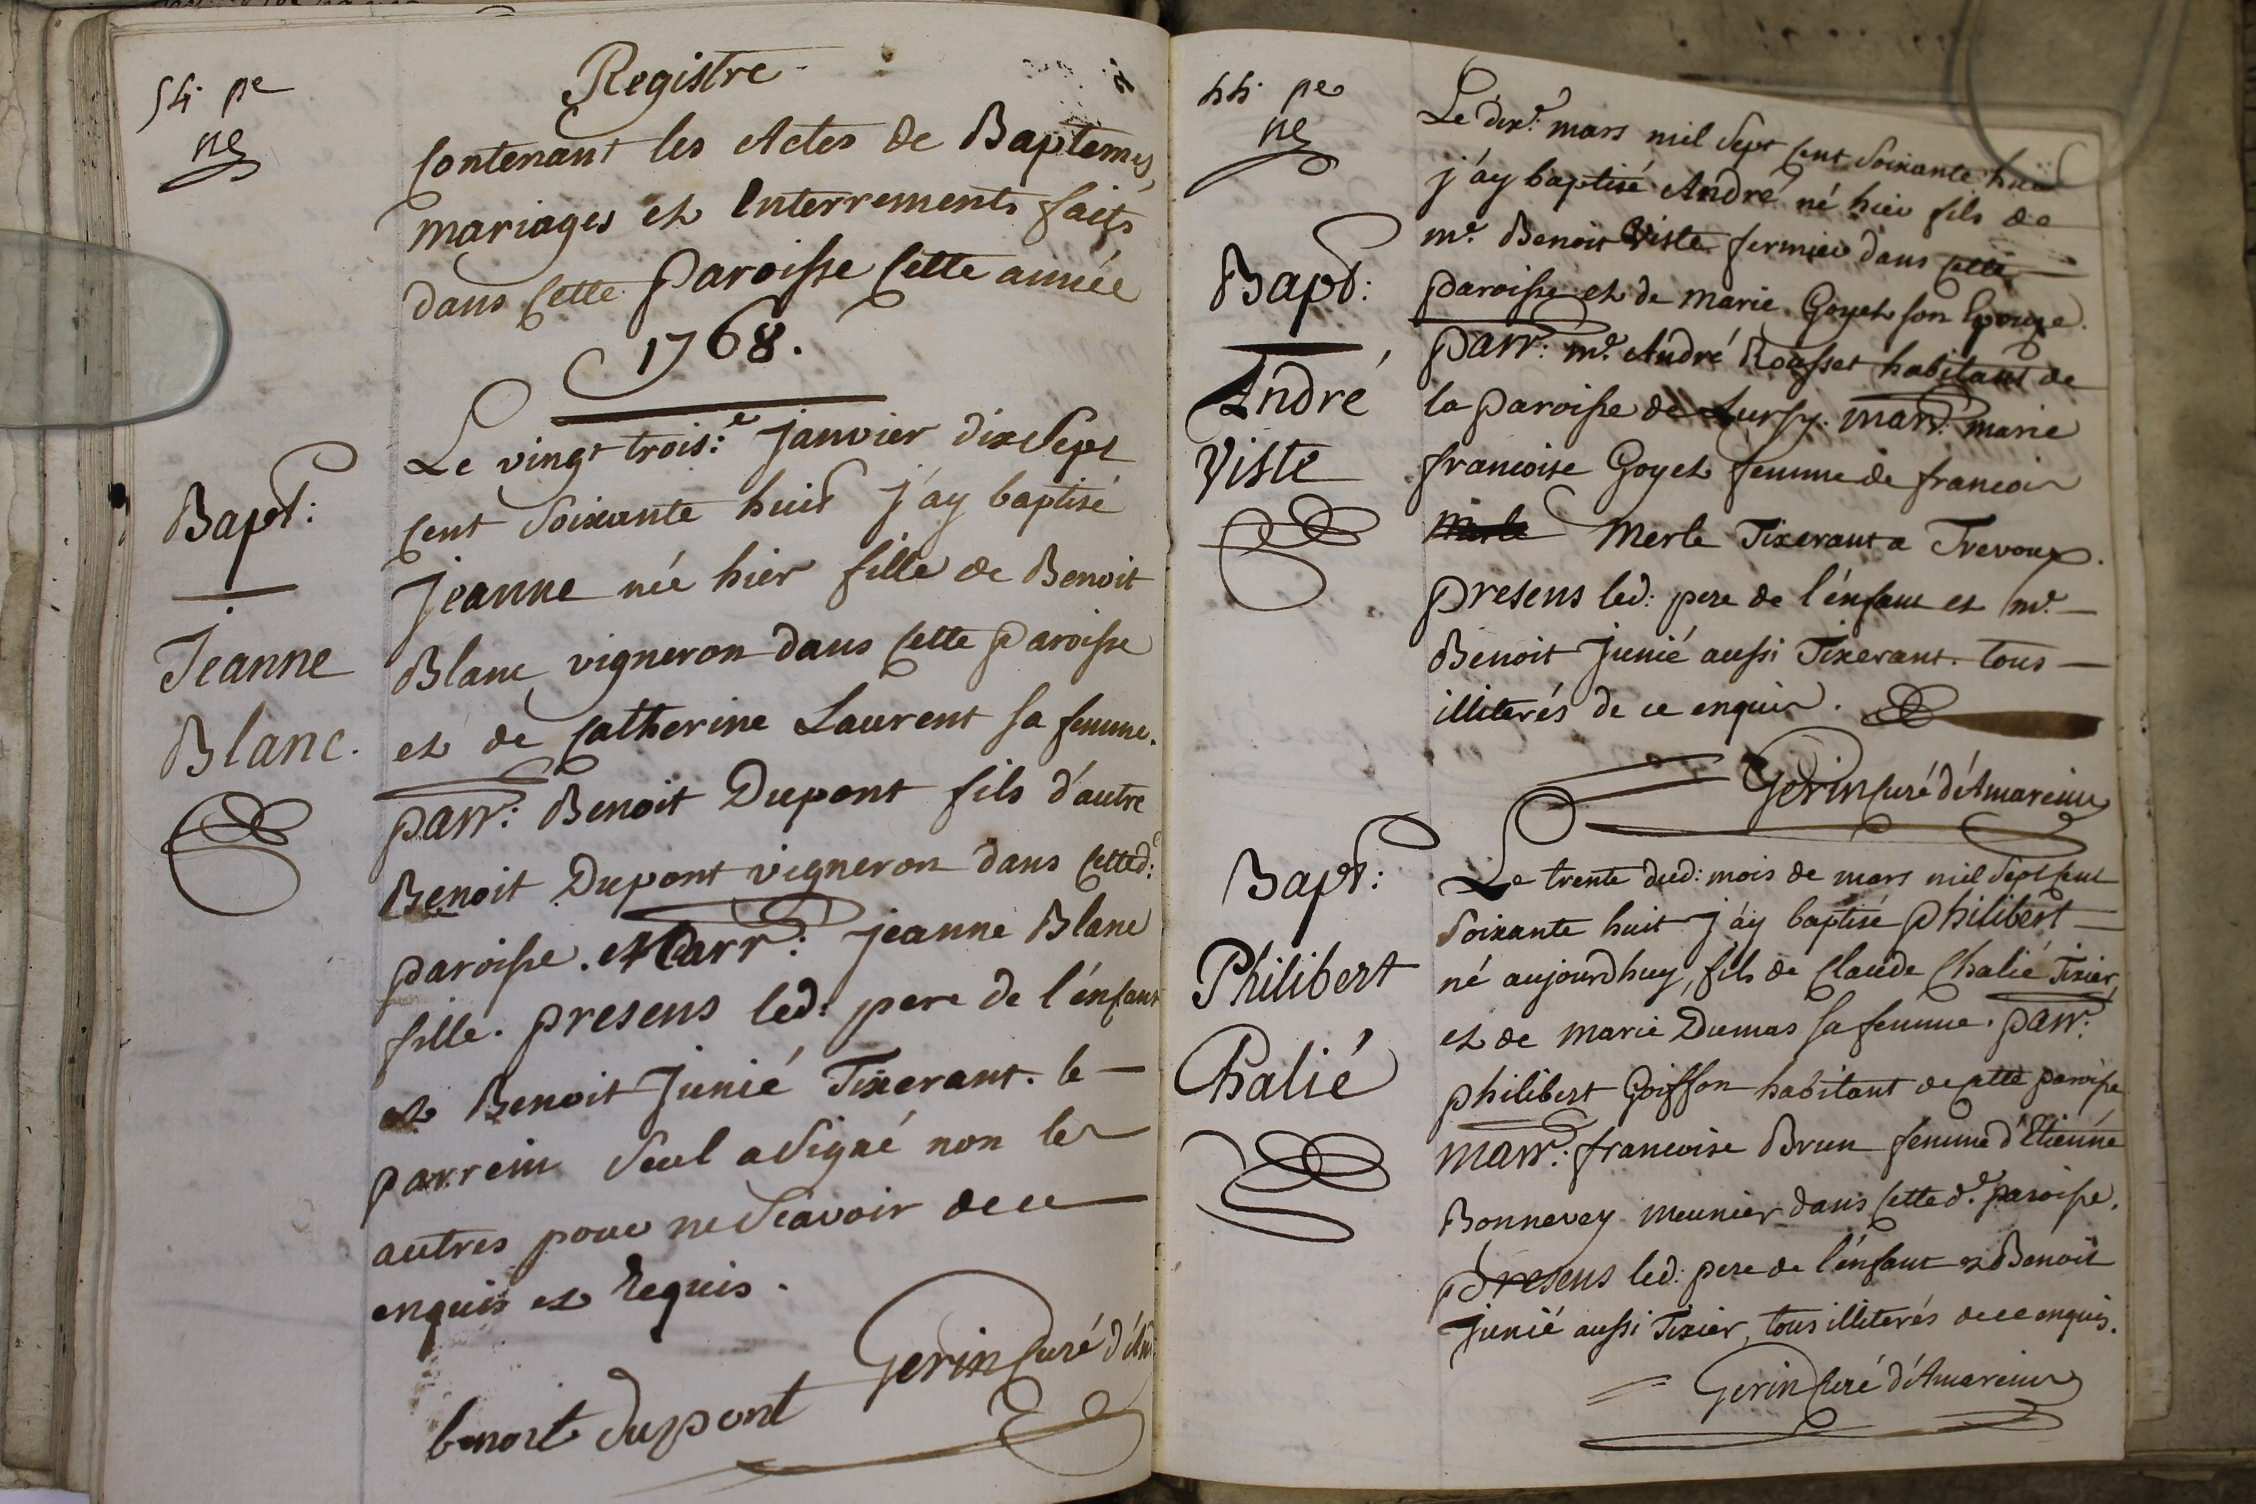 54. pe
ne
Registre
Contenant les Actes de Baptemes,
mariages et Interrements faits
dans Cette Paroisse Cette année
1768.
Bapt:
Jeanne
Blanc.
Le vingt trois:e janvier dix Sept
Cent Soixante huit j'ay baptisé
Jeanne née hier fille de Benoit
Blanc vigneron dans Cette Paroisse
et de Catherine Laurent sa femme.
parr: Benoit Dupont fils d'autre
Benoit Dupont vigneron dans Cetted:e
paroisse. et Marr: Jeanne Blanc
fille. presens led: pere de l'énfant
et Benoit Junié Tixerant. le
parrein Seul a Signé non les
autres pour ne Scavoir de ce
enquis et Requis.
Gerin Curé d'Am
benoit dupont
pe
ne
Bapt:
André
Viste
Le dix.e mars mil Sept Cent Soixante huit
j'áy baptisé André né hier fils de
m.e Benoit Viste fermier dans Cette
paroisse et de marie Goyet son Epouze.
parr: m.e André Rousset habitant de
la paroisse de Lursy. marr: marie
francoise Goyet femme de francois
Merle Merle Tixerant a Trevoux.
presens led: pere de l'énfant et m.e
Benoit Junié aussi Tixerant. tous
illiterés de ce enquis.
Gerin Curé d'Amareins
Bapt:
Philibert
Chalié
Le trente dud: mois de mars mil Sept Cent
Soixante huit j'áy baptisé Philibert
né aujourdhuy, fils de Claude Chalié Tixier,
et de marie Dumas sa femme. parr:
philibert Goiffon habitant de cette paroisse
marr: francoise Brun femme d'Etienne
Bonnevey meunier dans Cetted.e paroisse.
presens led: pere de l'énfant et Benoit
Junié aussi Tixier, tous illiterés de ce enquis.
Gerin Curé d'Amareins